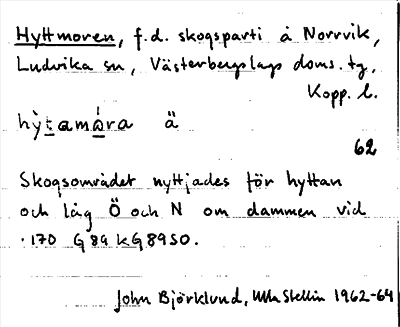 Hyttmoren, f.d. skogsparti å Norrvik,
Ludvika sn, Västerbergslags doms. tg,
Kopp. l.
hỳtamóra ä
62
Skogsområdet nyttjades för hyttan
och låg Ö och N om dammen vid
·170 G 89 k G 89 SO.
John Björklund, Ulla Stellin 1962-64